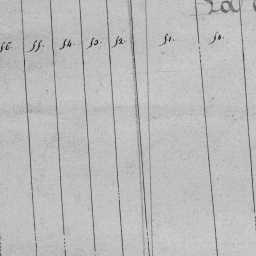 56. 55. 54. 53. 52. 51. 50.